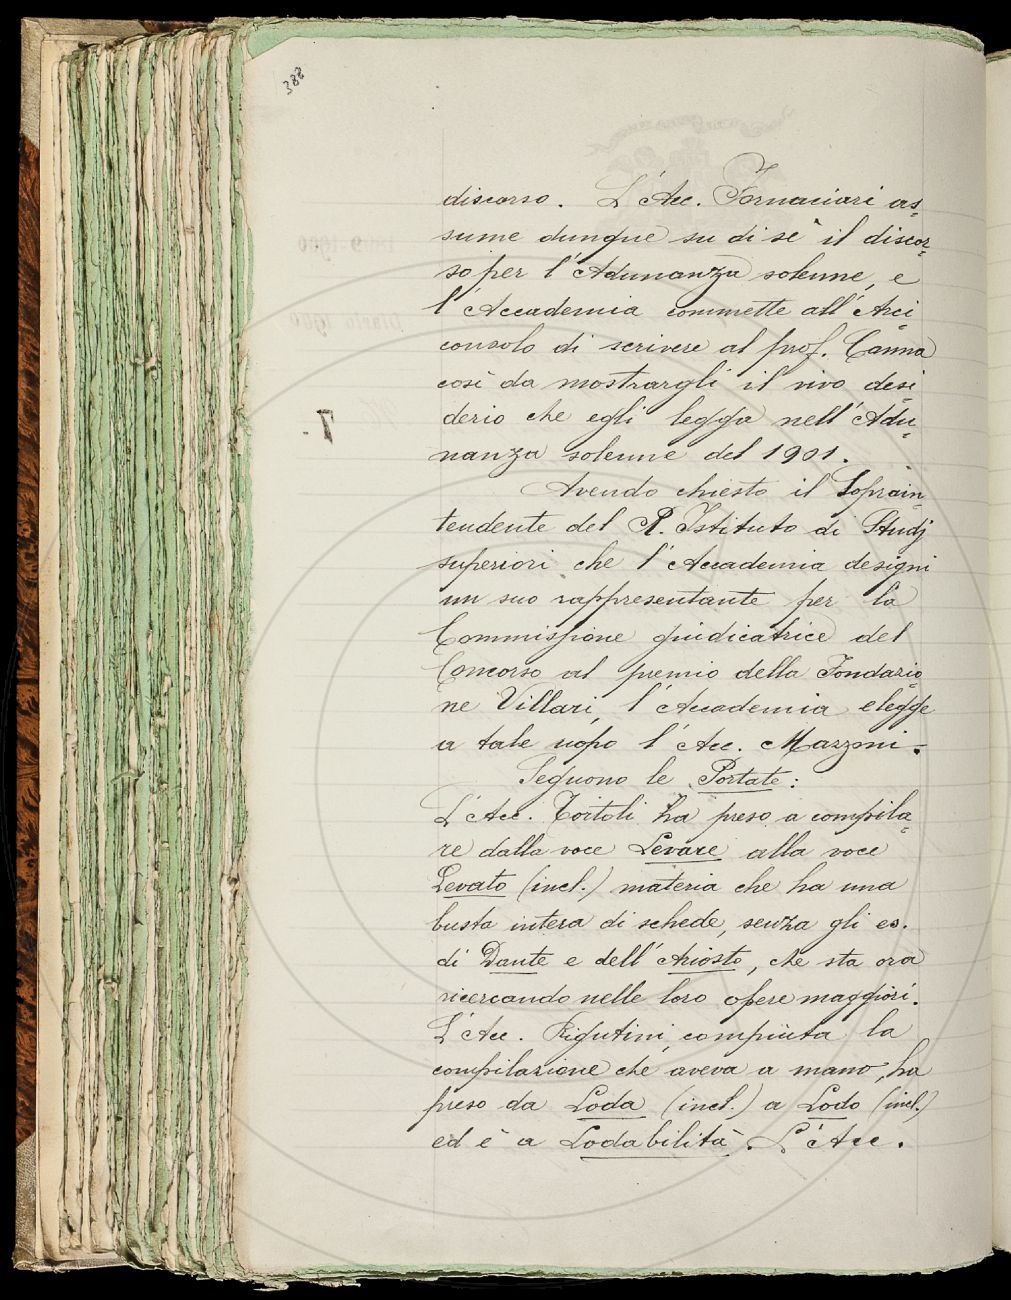 388
discorso. L'Acc. Fornaciari as=
sume dunque su di sè il discor=
so per l'Adunanza solenne, e
l'Accademia commette all'Arci=
consolo di scrivere al prof. Canna
così da mostrargli il vivo desi=
derio che egli legga nell'Adu=
nanza solenne del 1901.
Avendo chiesto il Soprain=
tendente del R. Istituto di Studj
superiori che l'Accademia designi
un suo rappresentante per la
Commissione giudicatrice del
Concorso al premio della Fondazio=
ne Villari, l'Accademia elegge
a tale uopo l'Acc. Mazzoni.=
Seguono le Portate:
L'Acc. Tortoli ha preso a compila=
re dalla voce Levare alla voce
Levato (incl.) materia che ha una
busta intera di schede, senza gli es.
di Dante e dell'Ariosto, che sta ora
ricercando nelle loro opere maggiori.
L'Acc. Rigutini, compiuta la
compilazione che aveva a mano, ha
preso da Loda (incl.) a Lodo (incl.)
ed è a Lodabilità. L'Acc.